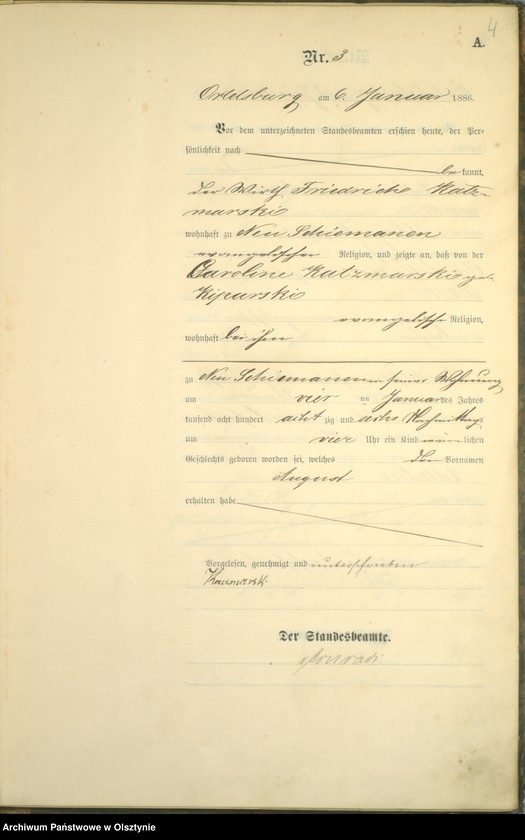 4
A.
Nr. 3
Ortelsburg am 6. Januar 1886.
Vor dem unterzeichneten Standesbeamten erschien heute, der Per-
sönlichkeit nach
be kannt,
der Wirth Friedrich Katz-
marski
wohnhaft zu Neu Schiemanen
evangelischer Religion, und zeigte an, daß von der
Caroline Katzmarski geb.
Kiparski
evangelische Religion,
wohnhaft bei ihm
zu Neu Schiemanen in seiner Wohnung
am vier ten Januar des Jahres
tausend acht hundert acht zig und sechs Nachmittags
um vier Uhr ein Kind männlichen
Geschlechts geboren worden sei, welches den Vornamen
August
erhalten habe
Vorgelesen, genehmigt und unterschrieben
Der Standesbeamte.
Archiwum Państwowe w Olsztynie